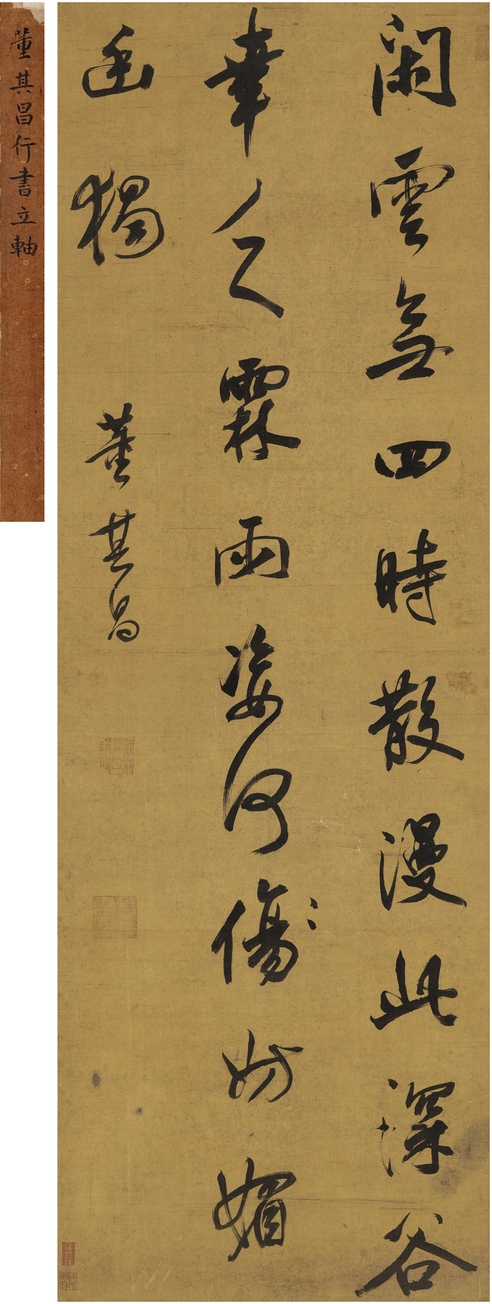 閑雲無四時散漫此深谷
幸乏霖雨姿何傷妨媚
幽獨
董其昌
董其昌行書立軸